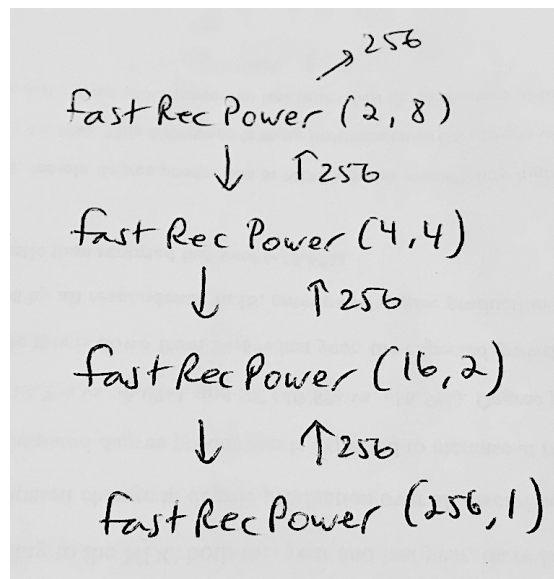 ↗256
fastRecPower (2,8)
↓ ↑256
fastRecPower (4,4)
↓ ↑256
fastRecPower (16,2)
↓ ↑256
fastRecPower (256,1)